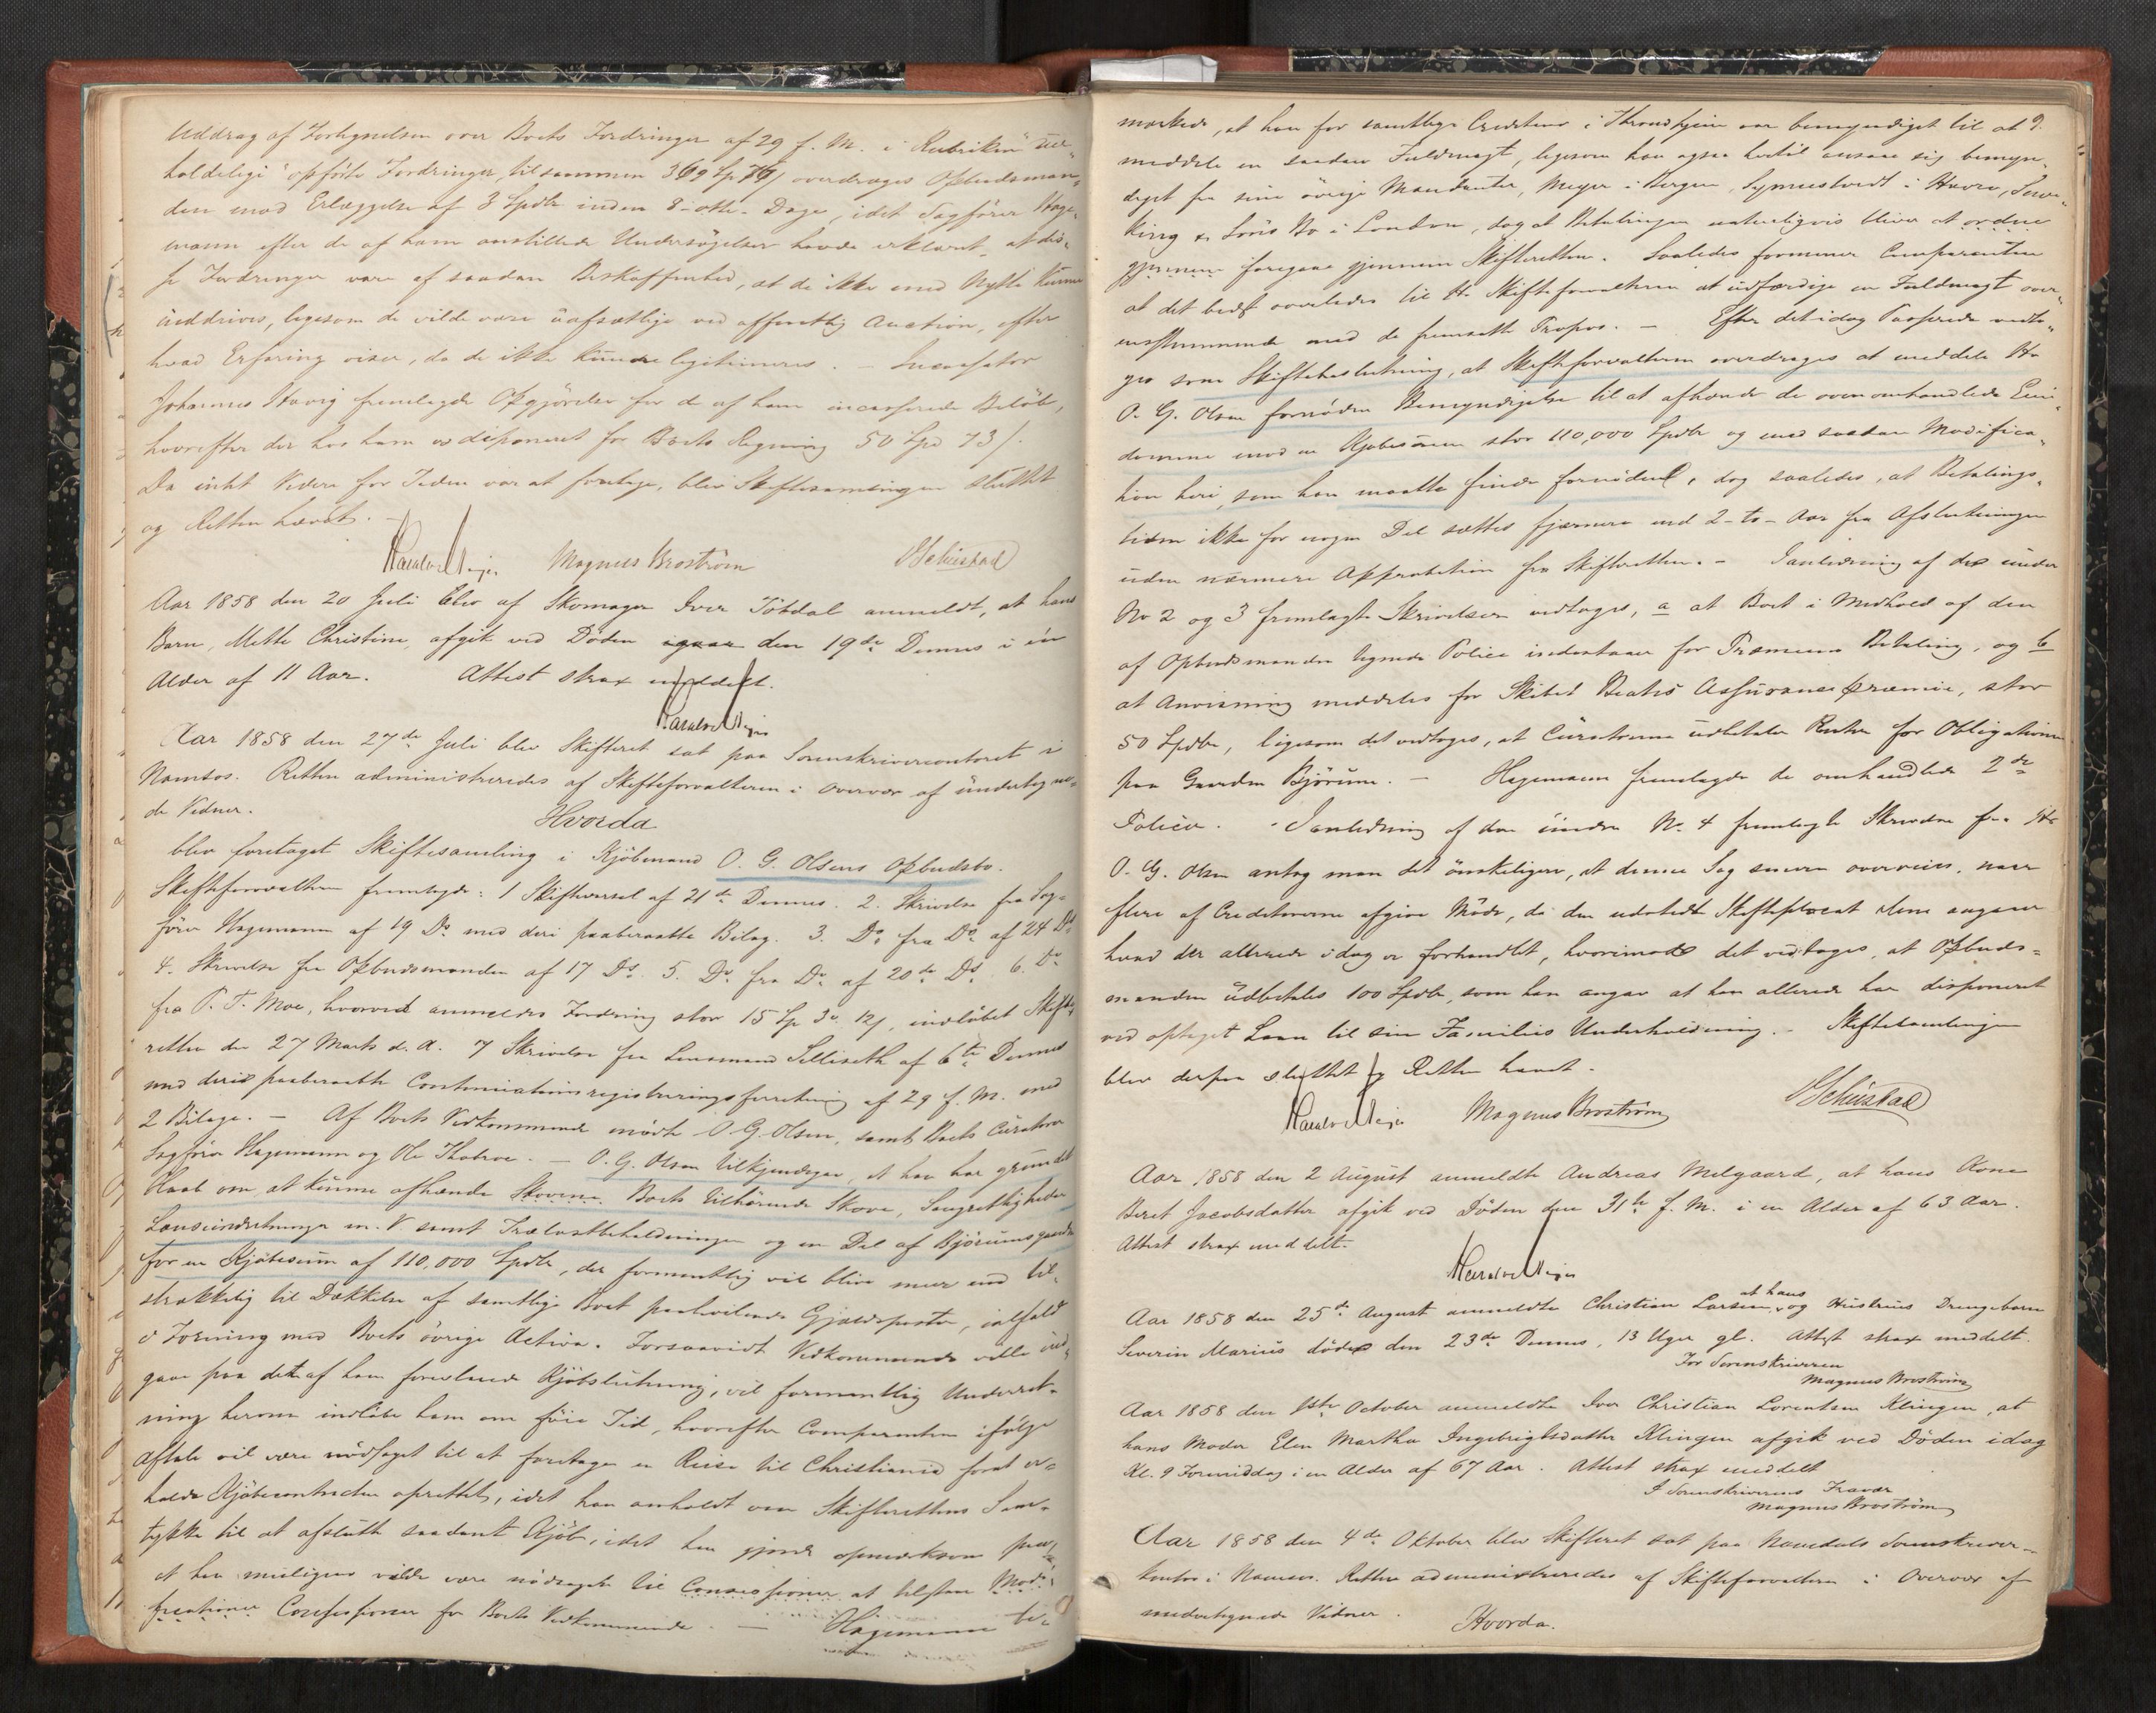 Uddrag af Fortegnelsen over Boets Fordringer af 29 f. M. i Rubriken "uer-
holdelige" opførte Fordringer, tilsammen 369 Sp 76 s overdrages Opbudsman-
den mod Erlæggelse af 3 Spdlr inden 8-otte-Dage, idet Sagfører Hage-
mann efter de af ham anstillede Undersøgelser havde erklæret, at dis-
se Fordringer vare af saadan Beskaffenhed, at de ikke med Nytte kunne
inddrives, ligesom de vilde være uafsættlige ved offentlig Auction, efter
hvad Erfaring viser, da de ikke kunde legitimeres. – Incassator
Johannes Havig fremlagde Opgjørelse for de af ham incasserede Beløb,
hvorefter der hos ham er disponeret for Boets Regning 50 Spd 73 s.
Da intet Videre for Tiden var at foretage, blev Skiftesamlingen sluttet
og Retten hævet. –
Magnus Broström Schiestad
Aar 1858 den 20 Juli blev af Skomager Iver Tötdal anmeldt, at hans
Barn, Mette Christine, afgik ved Døden igaar den 19de Dennes i en
Alder af 11 Aar. Attest strax meddelt.
Aar 1858 den 27de Juli blev Skifteret sat paa Sorenskrivercontoret i
Namsos. Retten administreredes af Skifteforvalteren i Overvær af undertegne-
de Vidner. Hvorda
blev foretaget Skiftesamling i Kjöbmand O. G. Olsens Opbudsbo.
Skifteforvalteren fremlagde: 1 Skiftevarsel af 21de Dennes. 2. Skrivelse fra Sag-
fører Hagemann af 19 Ds. med deri paaberaabte Bilag. 3. Do. fra Do. af 24 Ds.
4. Skrivelse fra Opbudsmanden af 17 Ds. 5. Do. fra Do. af 20de Ds. 6. Do
fra P. T. Moe, hvorved anmeldes Fordring stor 15 Sp 3 12 s, indløbet Skifte-
retten den 27 Marts d. A. 7 Skrivelse fra Lensmand Selliseth af 6te Dennes
med deri paaberaabte Continuationsregistreringsforretning af 29 f. M. med
2 Bilage. – Af Boets Vedkommende mødte O. G. Olsen, samt Boets Curatorer
Sagfører Hagemann og Ole Thobroe. – O. G. Olsen tilkjendegav, at han har grundet
Haab om at kunne afhænde Skovene. Boets tilhørende Skove, Saugrettigheder
Lenseindretninger m. V. samt Trælastbeholdninger og en Del af Bjørumsgaarden
for en Kjøbesum af 110,000 Spdlr, der formentlig vil blive meer end til-
strækkelig til Dækkelse af samtlige Boet paahvilende Gjældsposter, ialfald
i Forening med Boets øvrige Activa. Forsaavidt Vedkommende ville ind-
gaae paa det af ham foreslaaede Kjøbslutning, vil formentlig Underret-
ning herom indløbe ham om føie Tid, hvorefter Comparenten ifølge
Aftale vil være nødsaget til at foretage en Reise til Christiania forat er-
holde Kjøbecontracten oprettet, idet han anholdt om Skifterettens Sam-
tykke til at afslutte saadant Kjøb, idet han gjorde opmærksom paa,
at han muligens vilde være nødsaget til Concessioner at tilstaae Modi-
ficationer Concessioner for Boets Vedkommende. – Hagemann be-
mærkede, at han for samtlige Creditorer i Throndhjem var bemyndiget til at 9.
meddele en saadan Fuldmagt, ligesom han ogsaa hertil ansaae sig bemyn-
diget fra sine øvrige Mandanter, Meyer i Bergen, i Havre,
king & Søns Bo i London, dog at Betalingen naturligvis bliver at ordne
gjennem foregaae gjennem Skifteretten. Saaledes formener Comparenten
at det bedst overlades til Hr. Skifteforvalteren at udfærdige en Fuldmagt over-
ensstemmende med de fremsatte Propos. – Efter det idag Passerede vedto-
ges som Skiftebeslutning, at Skifteforvalteren overdrages at meddele Hr
O. G. Olsen fornøden Bemyndigelse til at afhænde de ovenomhandlede Eien-
domme mod en Kjøbesum stor 110,000 Spdlr og med saadan Modifica-
tion heri, som han maatte finde fornøden, dog saaledes, at Betalings-
tiden ikke for nogen Del sættes fjærnere end 2-to-Aar fra Afslutningen
uden nærmere Approbation fra Skifteretten. – I anledning af de under
No 2 og 3 fremlagte Skrivelser vedtoges, a at Boet i Medhold af den
af Opbudsmanden tegnede Police indestaaer for Præmiens Betaling, og b
at Anvisning meddeles for Skibet Beates Assurancepræmie, stor
50 Spdlr, ligesom det vedtoges, at Curatorerne udbetaler Renter for Obligationen
paa Gaarden Bjørum. – Hagemann fremlagde de omhandlede 2de
Policer. – I anledning af den under No. 4 fremlagte Skrivelse fra Hr
O. G. Olsen antog man det ønskeligere, at denne Sag senere overveies, naar
flere af Creditorerne afgive Møde, da den udstedte Skifteplacat alene angaaer
hvad der allerede idag er forhandlet, hvorimod det vedtoges, at Opbuds-
manden udbetales 100 Spdlr, som han angav at han allerede har disponeret
ved optaget Laan til sin Families Underholdning. – Skiftesamlingen
blev derpaa sluttet og Retten hævet.
Magnus Broström Schiestad
Aar 1858 den 2 August anmeldte Andreas Melgaard, at hans Kone
Beret Jacobsdatter afgik ved Døden den 31te f. M. i en Alder af 63 Aar.
Attest strax meddelt.
Aar 1858 den 25de August anmeldte Christian Larsen, at hans og Hustrues Drengebarn
Severin Marius døde den 23de Dennes, 13 Uger gl. Attest strax meddelt.
For Sorenskriveren
Magnus Broström
Aar 1858 den 1ste October anmeldte Iver Christian Lorentsen Klingen, at
hans Moder Elen Martha Ingebrigtsdatter Klingen afgik ved Døden idag
Kl. 9 Formiddag i en Alder af 67 Aar. Attest strax meddelt
I Sorenskriverens Fravær
Magnus Broström
Aar 1858 den 4de Oktober blev Skifteret sat paa Namdals Sorenskriver-
kontor i Namsos. Retten administreredes af Skifteforvalteren i Overvær af
undertegnede Vidner. Hvorda.